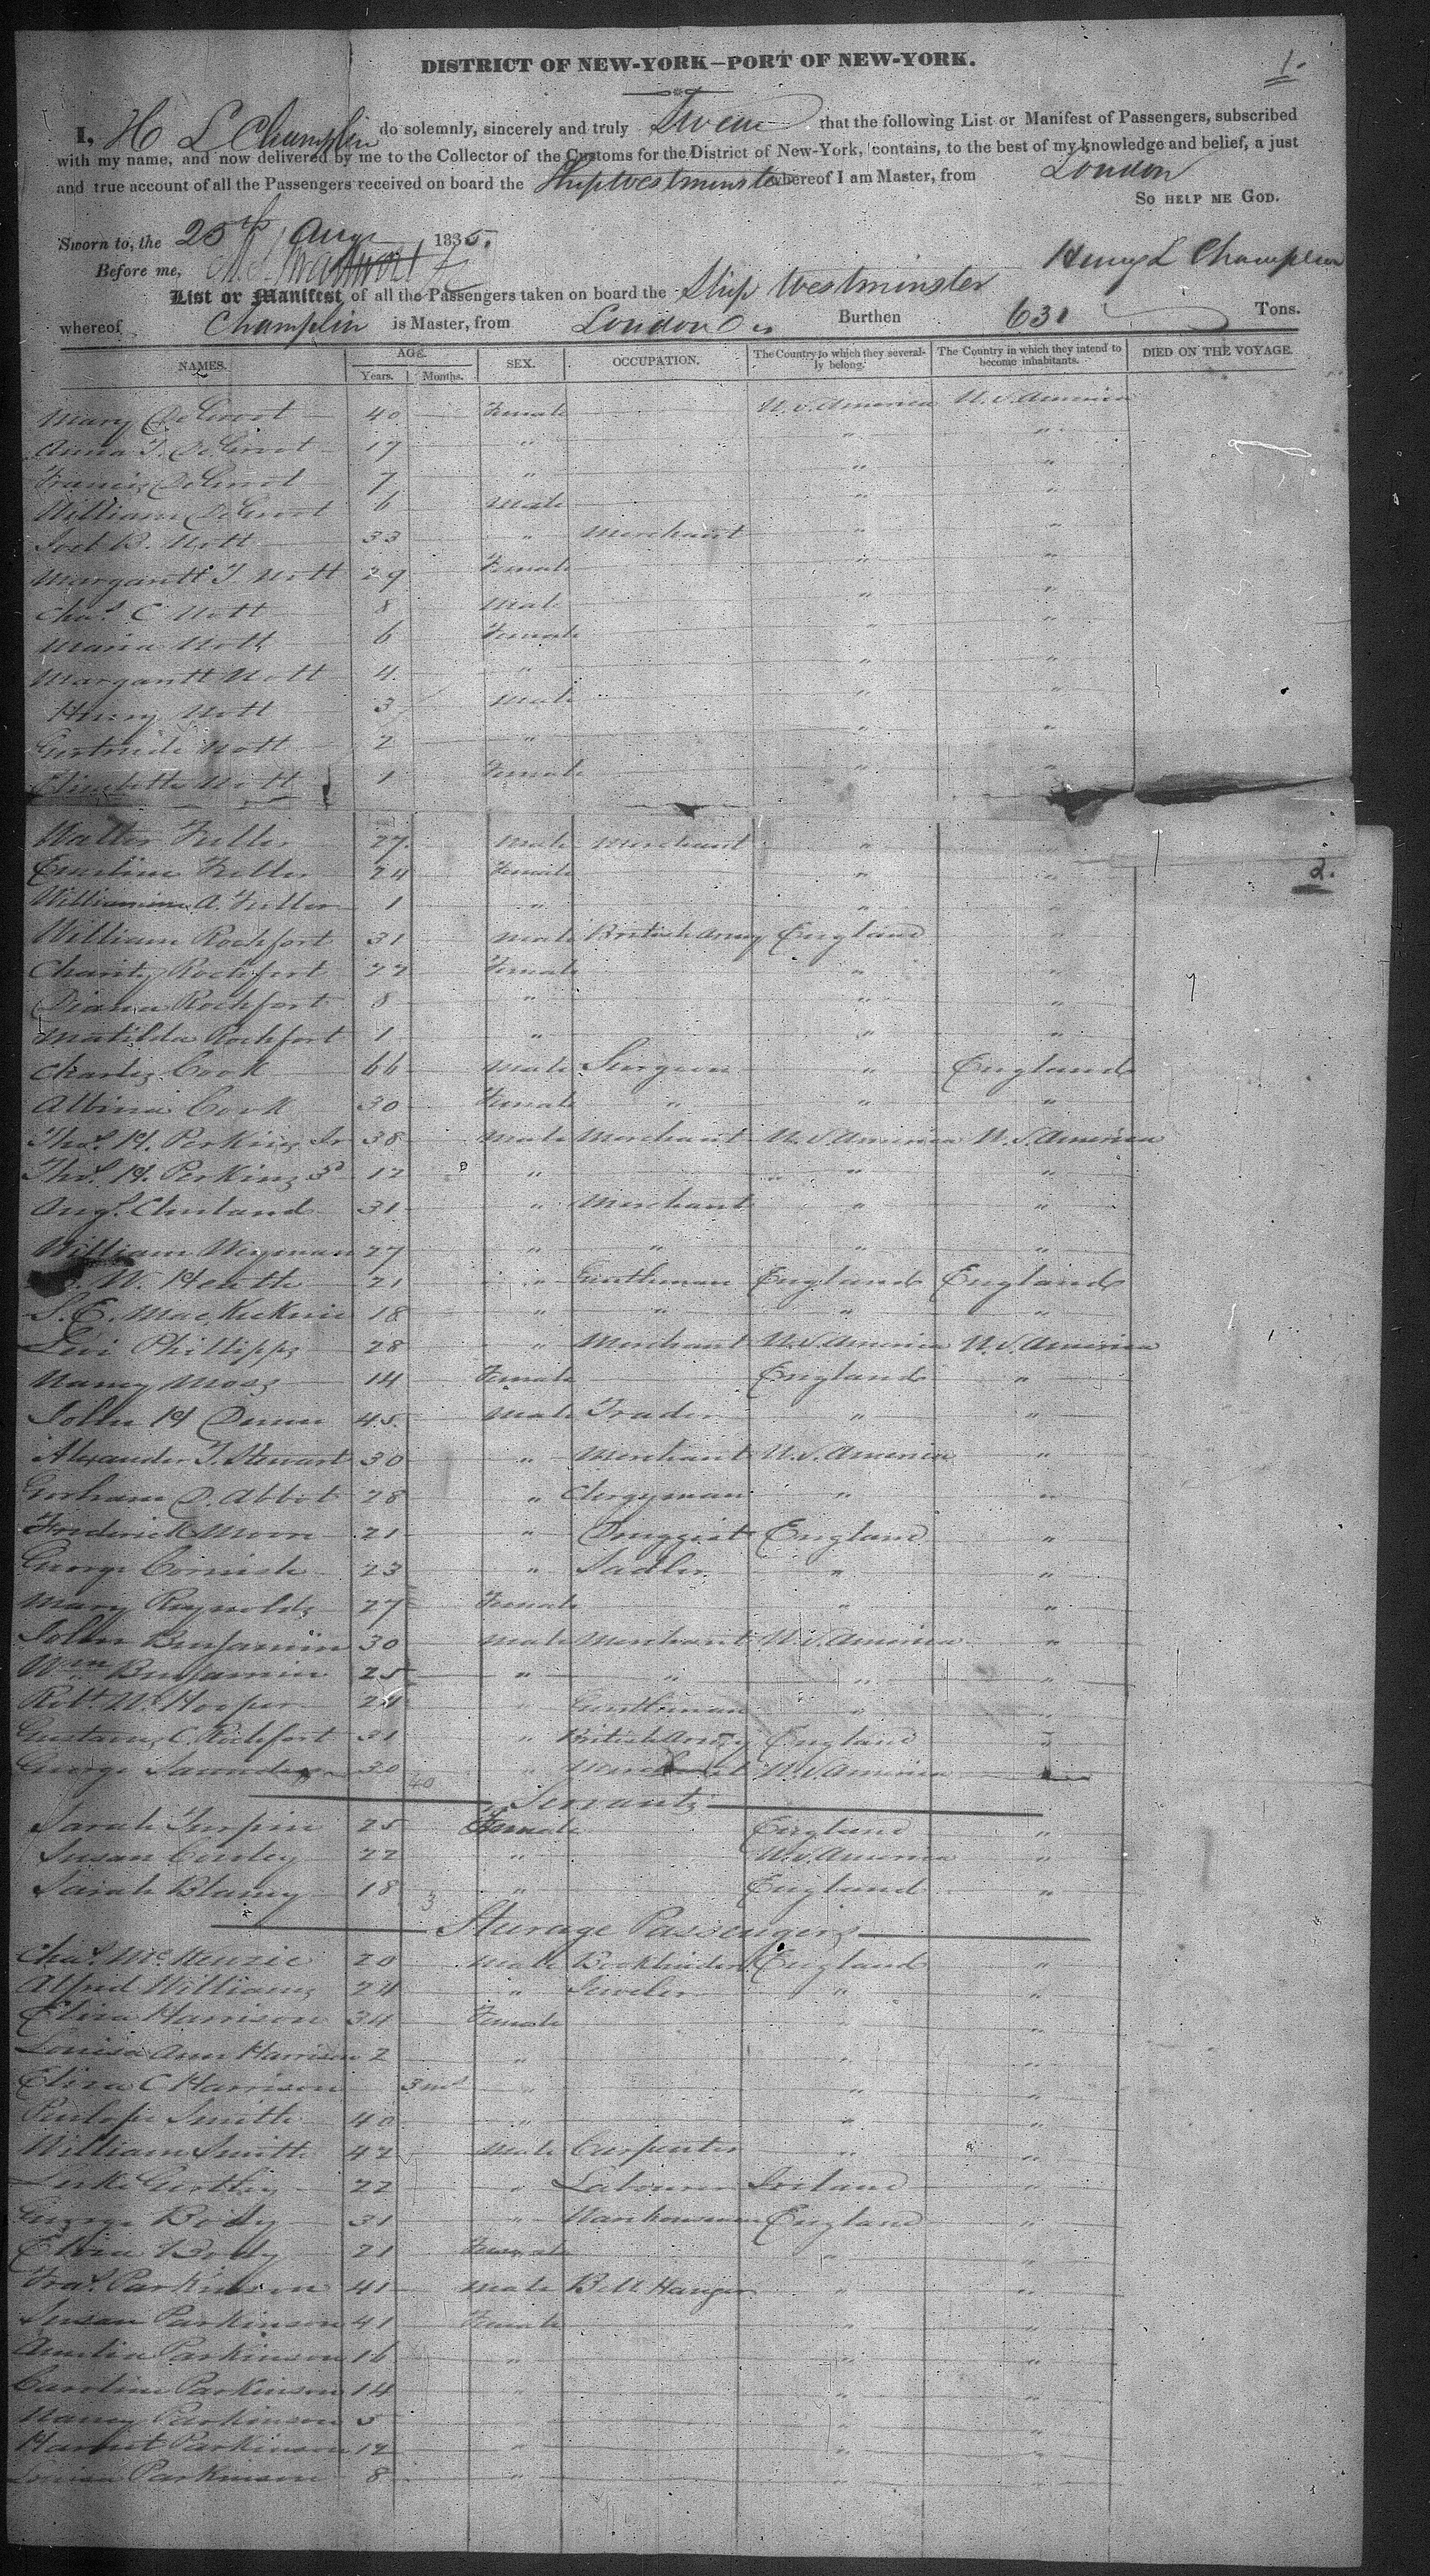 1.
DISTRICT OF NEW-YORK—PORT OF NEW-YORK.
I, H L Champlin do solemnly, sincerely and truly Swear that the following List or Manifest of Passengers, subscribed
with my name, and now delivered by me to the Collector of the Customs for the District of New-York, contains, to the best of my knowledge and belief, a just
and true account of all the Passengers received on board the Ship Westminster whereof I am Master, from London
SO HELP ME GOD.
Sworn to, the 25th Augt 1835.
Before me,
Henry L Champlin
List or Manifest of all the Passengers taken on board the Ship Westminster
whereof Champlin is Master, from London Burthen 631 Tons.
NAMES. AGE. Years. Months. SEX. OCCUPATION. The Country to which they severally belong. The Country in which they intend to become inhabitants. DIED ON THE VOYAGE.
Mary DeGroot 40 Female U.S. America U.S. America
Anna T. DeGroot 17 " " "
Francis DeGroot 7 " " "
William DeGroot 6 Male " "
Joel B. Nott 33 " Merchant " "
Margarett T. Nott 29 Female " "
Chas. C Nott 8 Male " "
Maria Nott 6 Female " "
Margarett Nott 4 " " "
Henry Nott 3 Male " "
Gertrude Nott 2 " " "
Elizabeth Nott 1 Female " "
Walter Fuller 27 Male Merchant " "
2.
Emeline Fuller 24 Female " "
Williamina A. Fuller 1 " " "
William Rochfort 31 Male British Army England "
Charity Rochfort 27 Female " "
Diana Rochfort 8 " " "
Matilda Rochfort 1 " " "
Charles Cook 66 Male Surgeon " England
Albina Cook 30 Female " " "
Thos. H. Perkins Jr 38 Male Merchant U.S. America U.S. America
Thos. H. Perkins 3d 12 " " "
Augs. Cleveland 31 " Merchant " "
William Wayman 27 " " " "
W. Heath 21 " Gentleman England England
S. E. Mac Kecknie 18 " " " "
Levi Phillipps 28 " Merchant U.S. America U.S. America
Nancy Moss 14 Female England "
John H Dunn 45 Male Trader " "
Alexander T. Stewart 30 " Merchant U.S. America "
Gorham D. Abbot 28 " Clergyman " "
Frederick Moore 21 " Druggist England "
George Cornish 23 " Sadler " "
Mary Reynolds 27 Female " "
John Benjamin 30 Male Merchant U.S. America "
Wm Benjamin 25 " " " "
Robt. W. Hooper 24 " Gentleman " "
Gustavus C. Rochfort 31 " British Army England "
George Saunderson 30 " Merchant U.S. America
40
Servants
Sarah Turpin 25 Female England "
Susan Conley 22 " U.S. America "
Sarah Blamy 18 " England "
3
Steerage Passengers
Chas. McKenzie 20 Male Bookbinder England "
Alfred Williams 24 " Jeweler " "
Eliza Harrison 34 Female " "
Louisa Ann Harrison 2 " " "
Eliza C Harrison 3 ms " " "
Penlope Smith 40 " " "
William Smith 42 Male Carpenter " "
Luke 22 " Labourer Ireland "
George Body 31 " Warehouseman England "
Eliza Body 21 Female " "
Fras. Parkinson 41 Male Bell Hanger " "
Susan Parkinson 41 Female " "
Amelia Parkinson 16 " " "
Caroline Parkinson 14 " " "
Nancy Parkinson 5 " "
Harriet Parkinson 12 " " "
Louisa Parkinson 8 " " "